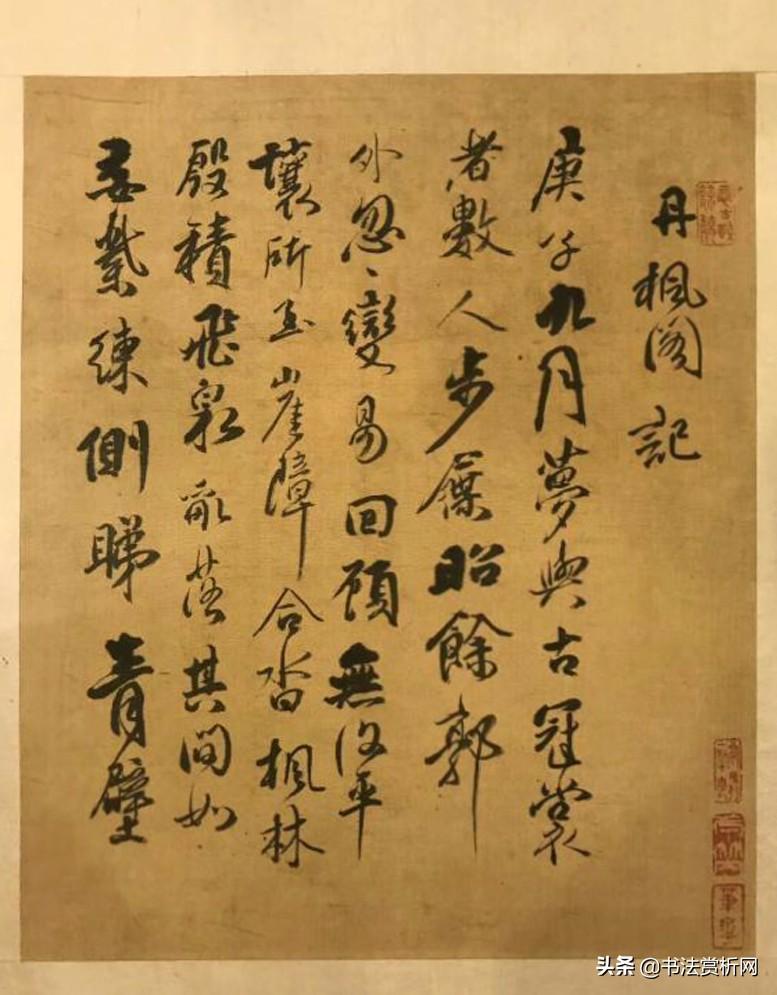 丹楓阁記
庚子九月夢與古冠裳
者數人步屧昭餘郭
外忽〻變易回顧無復平
壤所至崖障合沓楓林
殷積飛泉亂落其間如
縈練側睇青壁
头条 @书法赏析网